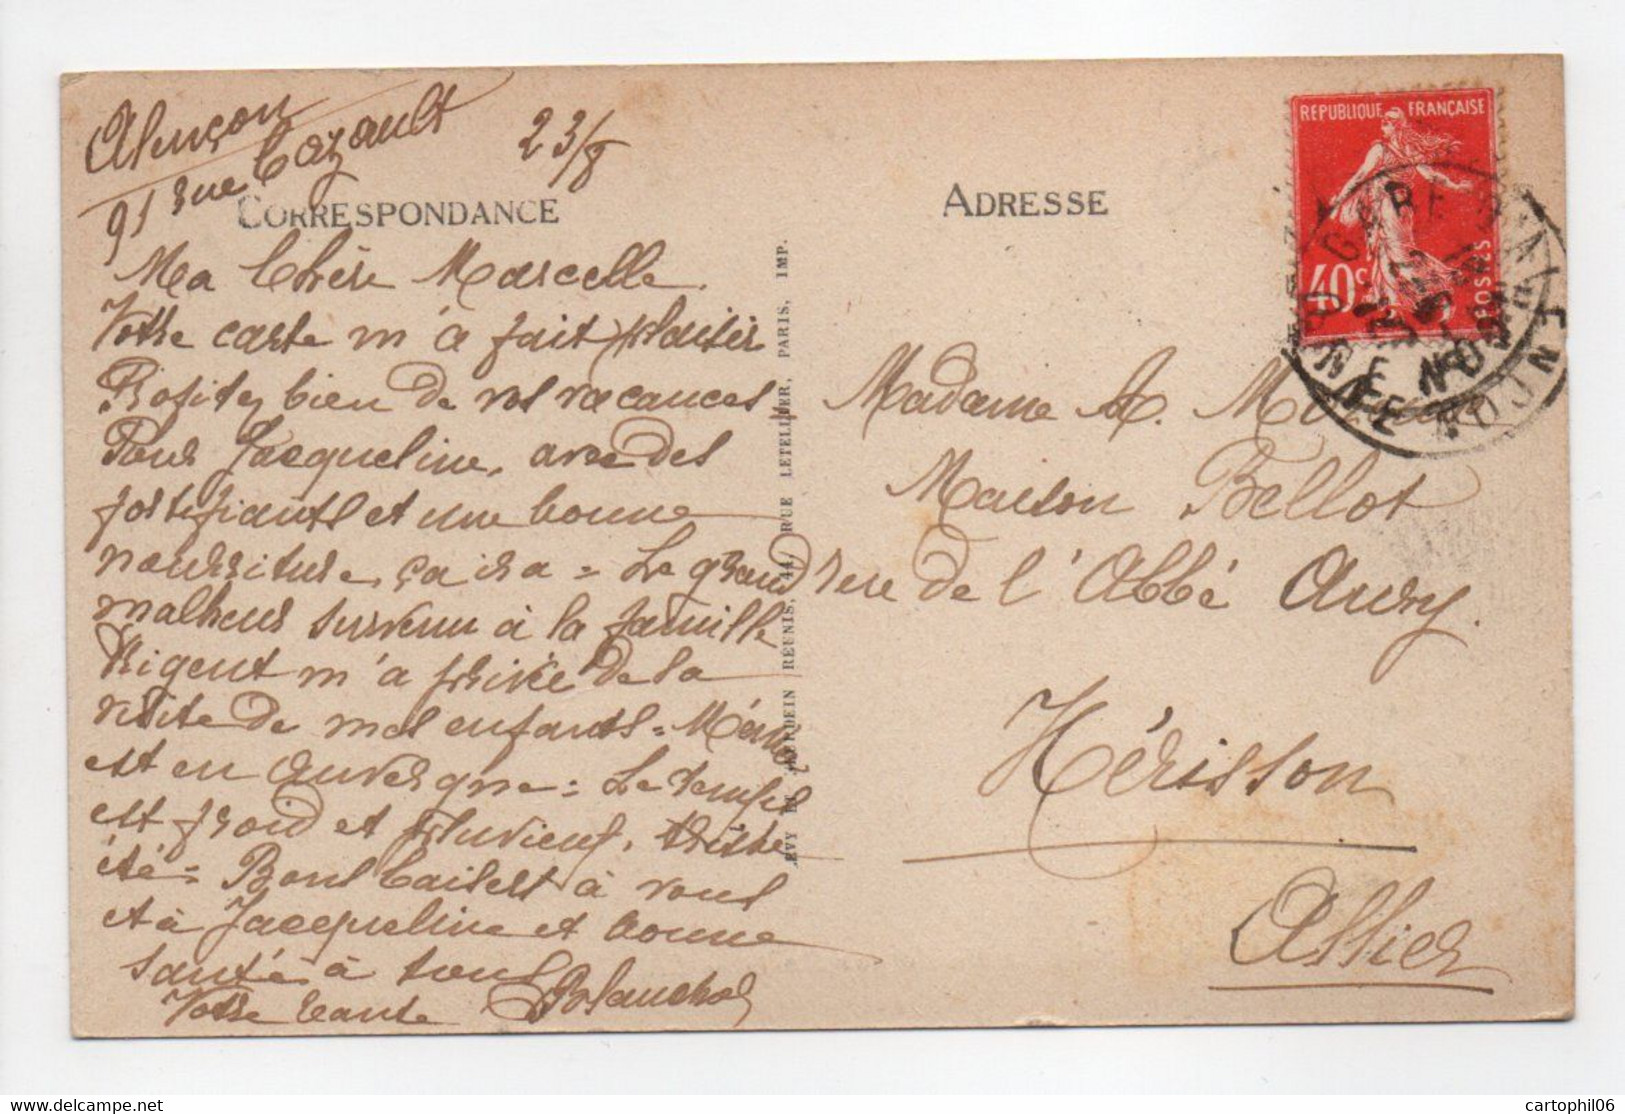 Alençon
91 rue Cazault
23/8
CORRESPONDANCE
Ma Chère Marcelle.
Votre carte m'a fait plaisir
Profitez bien de vos vacances
Pour Jacqueline, avec des
fortifiants et une bonne
nourriture, ça ira = Le grand
malheur survenu à la famille
Rigent m'a privée de la
visite de mes enfants =
est en Auvergne = Le temps
est froid et pluvieux, triste
été = Bons baisers à vous
et à Jacqueline et bonne
santé à tous
Votre tante Blanche
LEVY ET NEURDEIN REUNIS, 44, RUE LETELLIER, PARIS, IMP.
ADRESSE
REPUBLIQUE FRANÇAISE
40c
POSTES
GARE D'ALENÇON
Madame A.
Maison Bellot
rue de l'Abbé Aury.
Hérisson
Allier
cartophil06